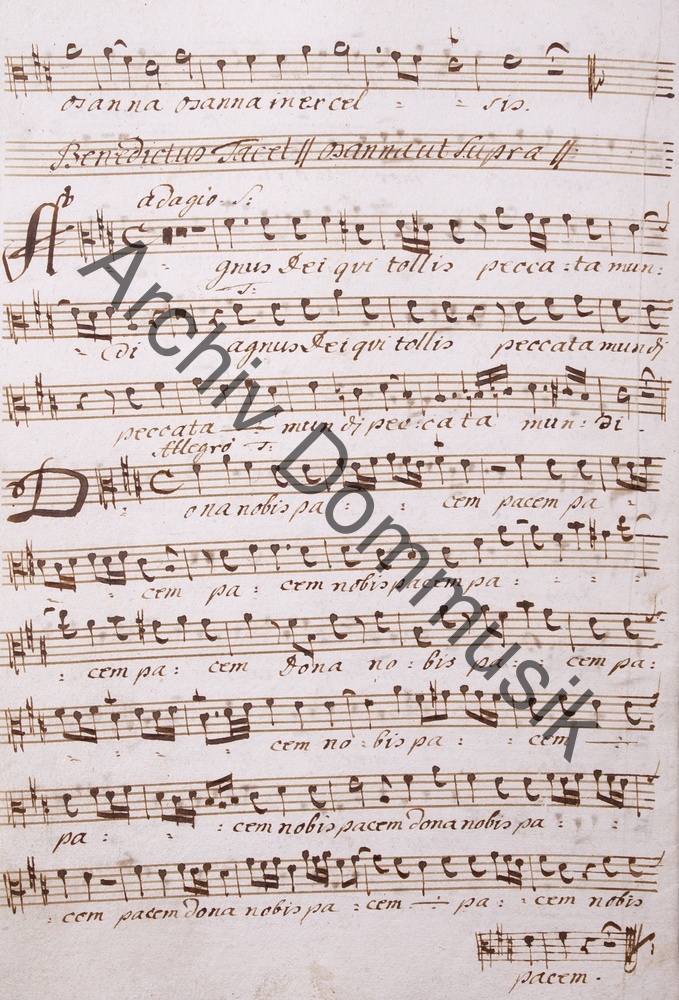 osanna osanna in excel - - sis.
Benedictus Tacet // osanna ut supra //
adagio. S:
Agnus Dei qui tollis pecca:ta mun:
T:
- di agnus Dei qui tollis peccata mundi
peccata — mundi pec:cata mun:di.
Allegro T:
Dona nobis pa : : cem pacem pa
: cem pa: cem nobis pacem pa : : : :
: cem pa: cem Dona no:bis pa: : cem pa:
: : cem no:bis pa : : cem —
pa : : cem nobis pacem dona nobis pa : :
: cem pacem dona nobis pa:cem — pa: : cem nobis
pacem.
Archiv Dommusik